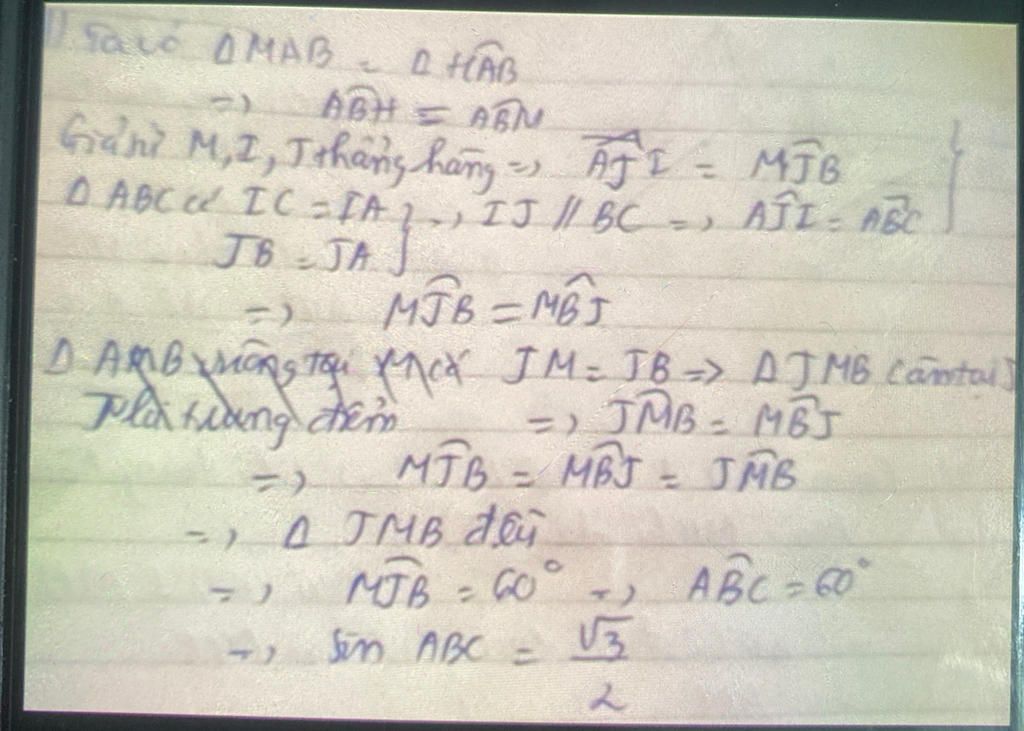 Ta có Δ MAB = Δ HAB
=> ABH = ABM
Giả sử M, I, J thẳng hàng => AJI = MJB
Δ ABC có IC = IA } => IJ // BC => AJI = ABC
JB = JA
=> MJB = MBJ
Δ AMB vuông tại M có JM = JB => Δ JMB cân tại J
J là trung điểm => JMB = MBJ
=> MJB = MBJ = JMB
=> Δ JMB đều
=> MJB = 60° => ABC = 60°
=> Sin ABC = √3/2